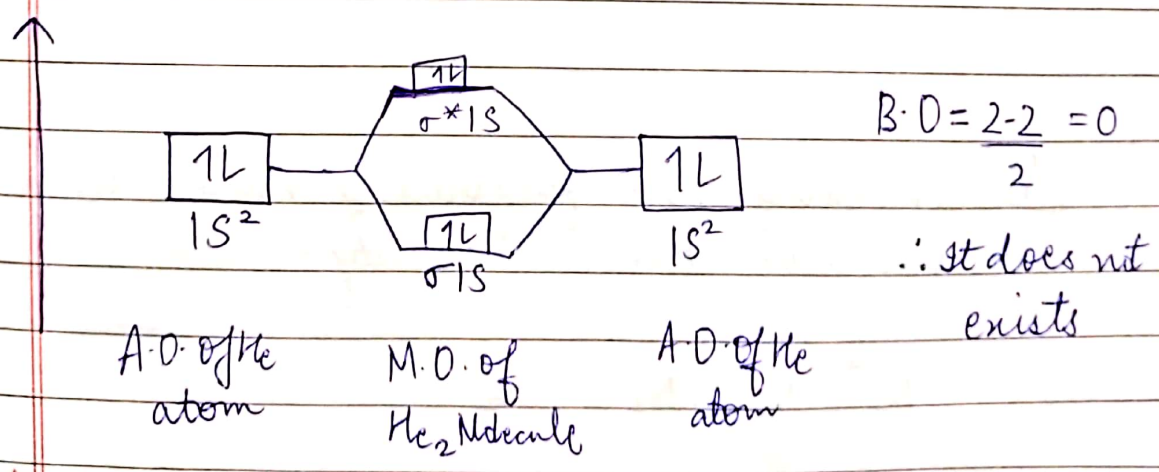 1L
σ*1S
B.O = 2-2 = 0
2
1L
1L
1S²
1L
1S²
σ1S
∴ It does not
exists
A.O. of He
atom
M.O. of
He₂ Molecule
A.O. of He
atom